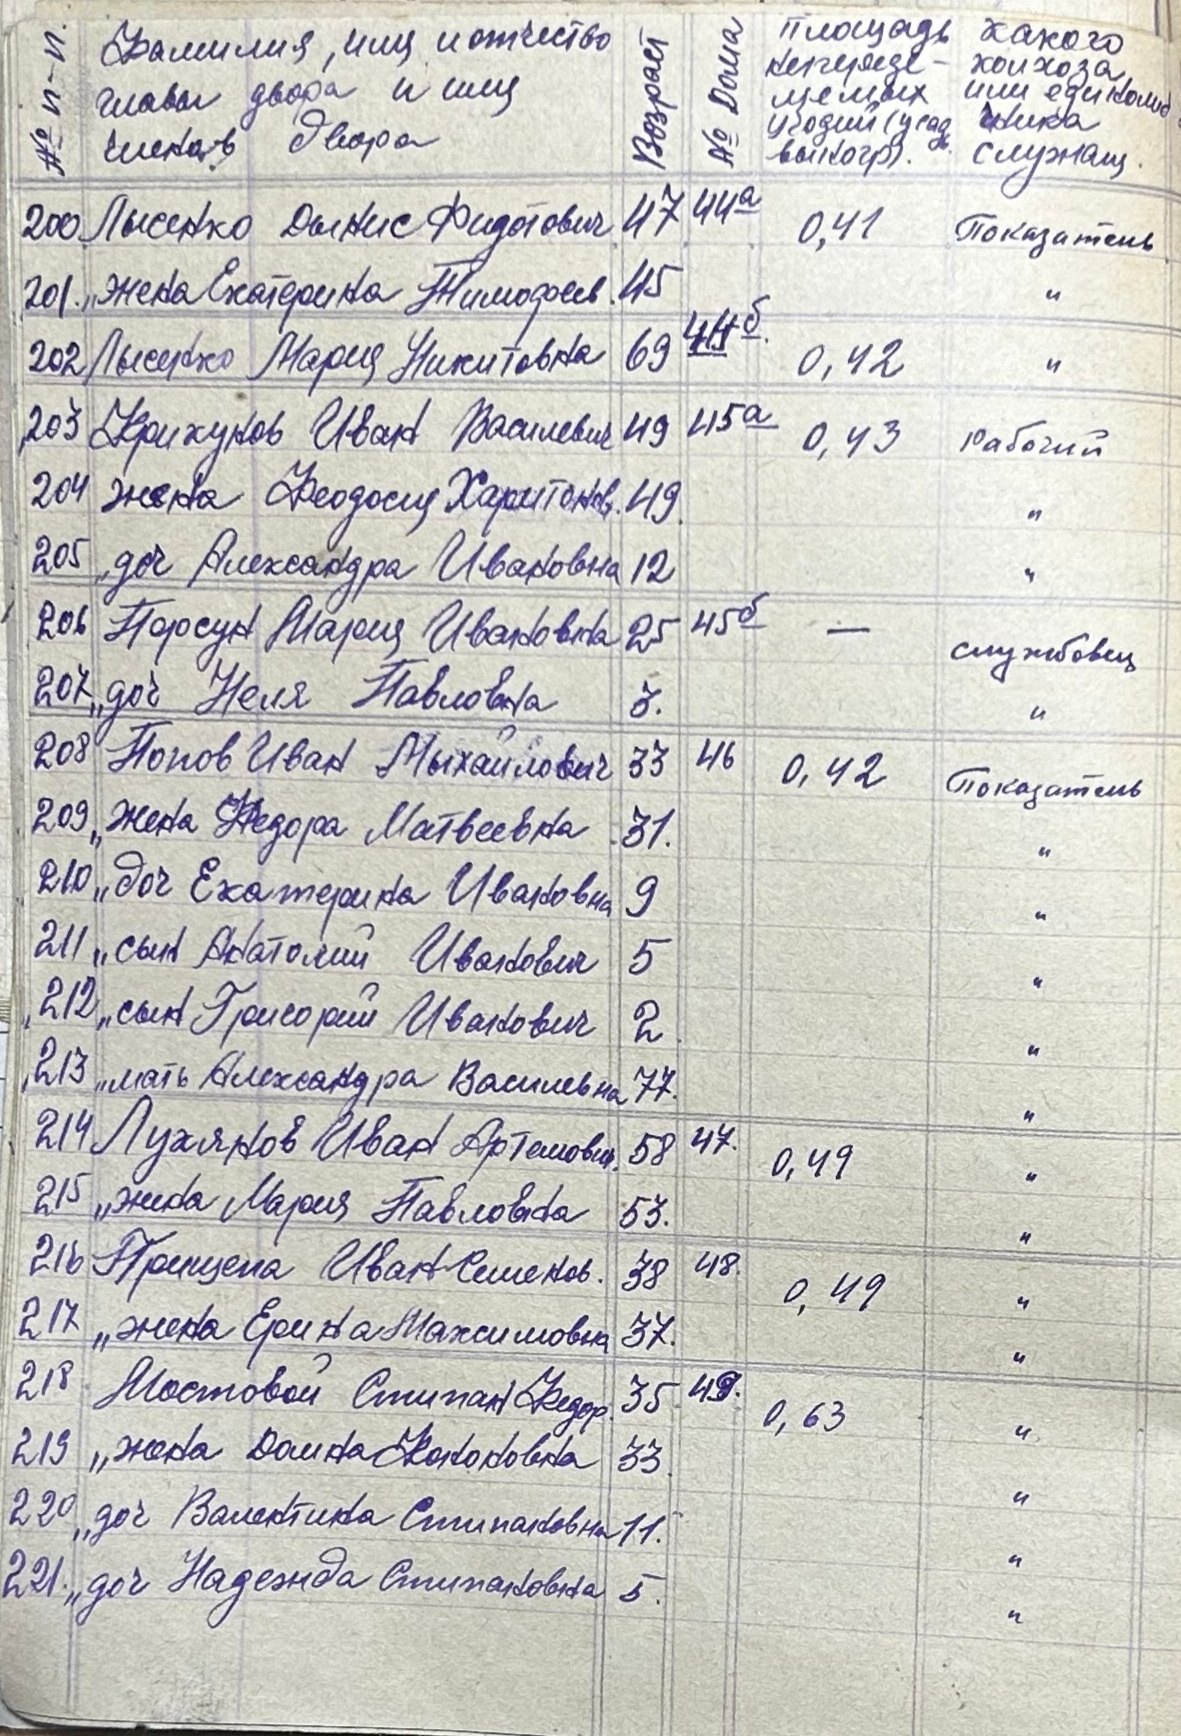 № п-п. Фамилия, имя и отчество главы двора и имя членов двора Возраст № Дома Площадь непереде-лемых угодий (усад. виногр). Какого колхоза или единолич ника служащ.
200 Лысенко Дынис Фидотович 47 44а 0,41 Показатель
201. „ жена Екатерина Тимофеев. 45 "
202 Лысенко Мария Никитовна 69 44б. 0,42 "
203 Крикунов Иван Василевич 49 45а 0,43 Рабочий
204 жена Феодосия Харитонов. 49 "
205 „ доч Александра Ивановна 12 "
206 Порсун Мария Ивановна 25 45б — службовец
207 „ доч Неля Павловна 3. "
208 Попов Иван Мыхайлович 33 46 0,42 Показатель
209 „ жена Федора Матвеевна 31. "
210 „ доч Екатерина Ивановна 9 "
211 „ сын Анатолий Иванович 5 "
212 „ сын Григорий Иванович 2 "
213 „ мать Александра Василевна 77. "
214 Лухянов Иван Артемович. 58 47. 0,49 "
215 „ жена Мария Павловна 53. "
216 Прищепа Иван Семенов. 38 48. 0,49 "
217 „ жена Ерина Максимовна 37. "
218 Мостовой Стипан Федор. 35 49. 0,63 "
219 „ жена Домна Кононовна 33 "
220 „ доч Валентина Стипановна 11. "
221. „ доч Надежда Стипановна 5. "